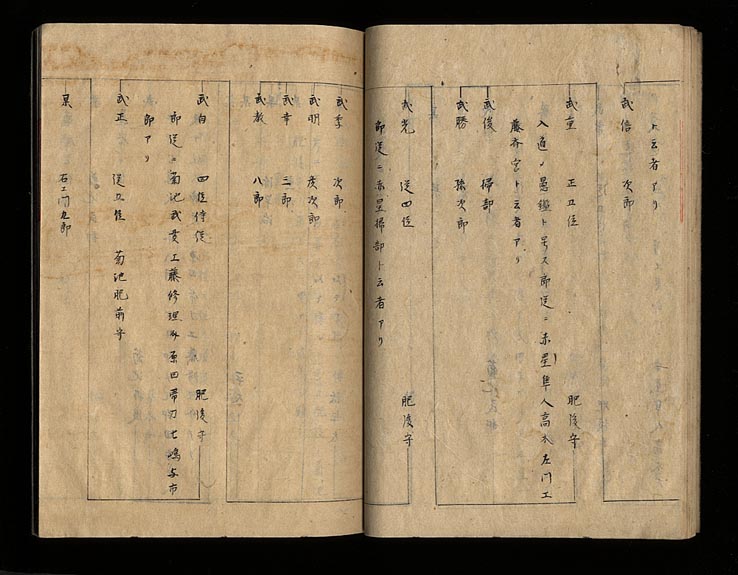 ト云者アリ
武信 次郎
武重 正五位 肥後守
入道ノ愚鑑ト号ス郎従ニ赤星隼人高木左門工
藤斉宮ト云者アリ
武俊 掃部
武勝 孫次郎
武光 従四位 肥後守
郎従ニ赤星掃部ト云者アリ
武季 次郎
武明 彦次郎
武幸 三郎
武教 八郎
武向 四位侍従 肥後守
郎従ニ菊池武貫工藤修理 原田帯刀七嶋与市
郎アリ
武正 従五位 菊池肥前守
某 九郎